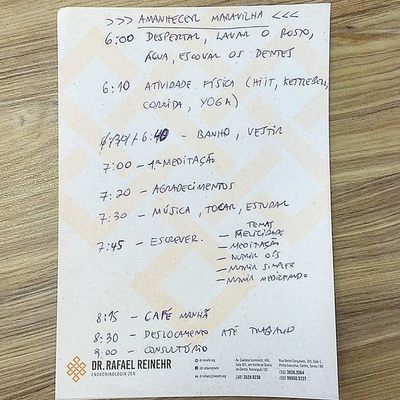 >>> AMANHECER MARAVILHA <<<
6:00 DESPERTAR, LAVAR O ROSTO,
ÁGUA, ESCOVAR OS DENTES
6:10 ATIVIDADE FÍSICA (HIIT, KETTLEBELL,
CORRIDA, YOGA)
6:40 - BANHO, VESTIR
7:00 - 1ª MEDITAÇÃO
7:20 - AGRADECIMENTOS
7:30 - MÚSICA, TOCAR, ESTUDAR
TEMAS
7:45 - ESCREVER. - FELICIDADE
- MEDITAÇÃO
- NUTRIR OIS
- NUTRIR SIMPLES
- NUTRIR MEDITANDO
8:15 - CAFÉ MANHÃ
8:30 - DESLOCAMENTO ATÉ TRABALHO
9:00 - CONSULTÓRIO
DR. RAFAEL REINEHR
ENDOCRINOLOGIA ZEN